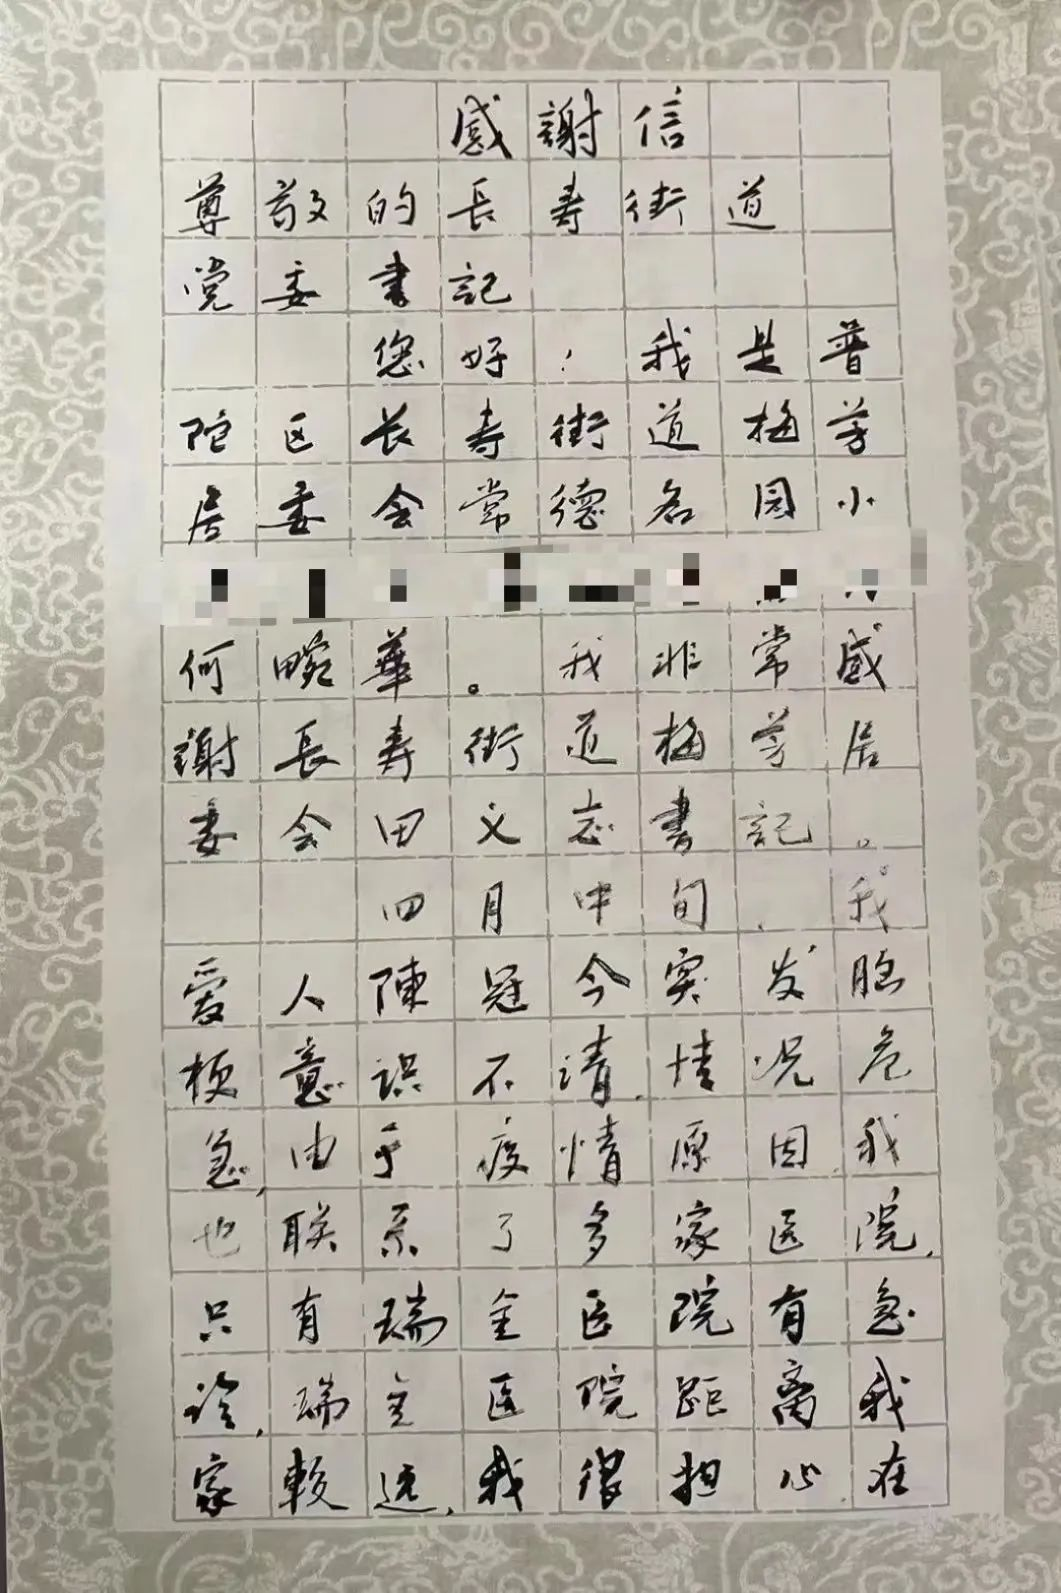 感謝信
尊敬的長寿街道
党委書記
您好!我是普
陀区長寿街道梅芳
居委会常德名园小
何畹華。我非常感
謝長寿街道梅芳居
委会田义志書記。
四月中旬,我
爱人陳冠今突发脑
梗意识不清,情况危
急,由于疫情原因,我
也联系了多家医院,
只有瑞金医院有急
诊,瑞金医院距离我
家較远,我很担心在